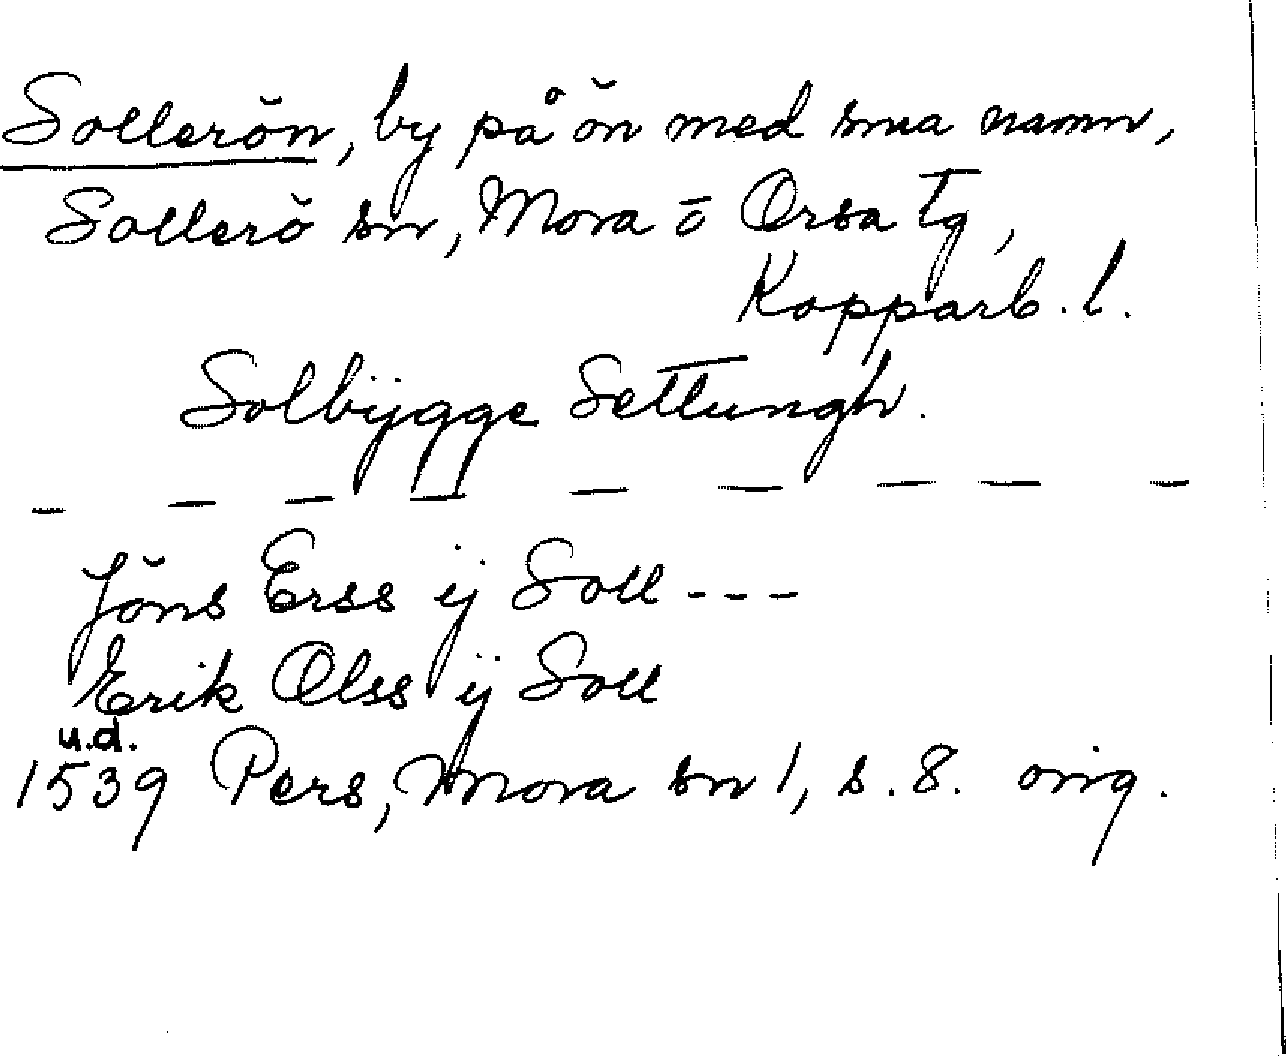 Sollerön, by på ön med sma namn,
Sollerö sn, Mora o Orsa tg,
Kopparb. l.
Solbÿgge Settungh.
— — — — — — — — —
Jöns Erss ÿ Soll ---
Erik Olss ÿ Soll
u.d.
1539 Pers, Mora sn 1, s. 8. orig.